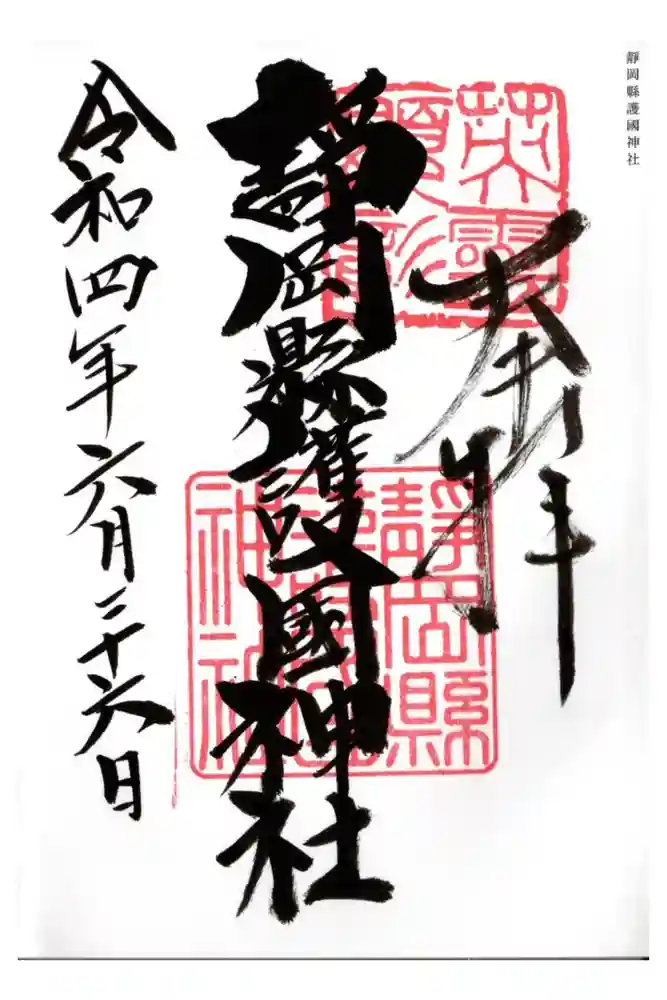 靜岡縣護國神社
奉拝
英霊顕彰
靜岡縣護國神社
靜岡縣護國神社
令和四年六月二十六日